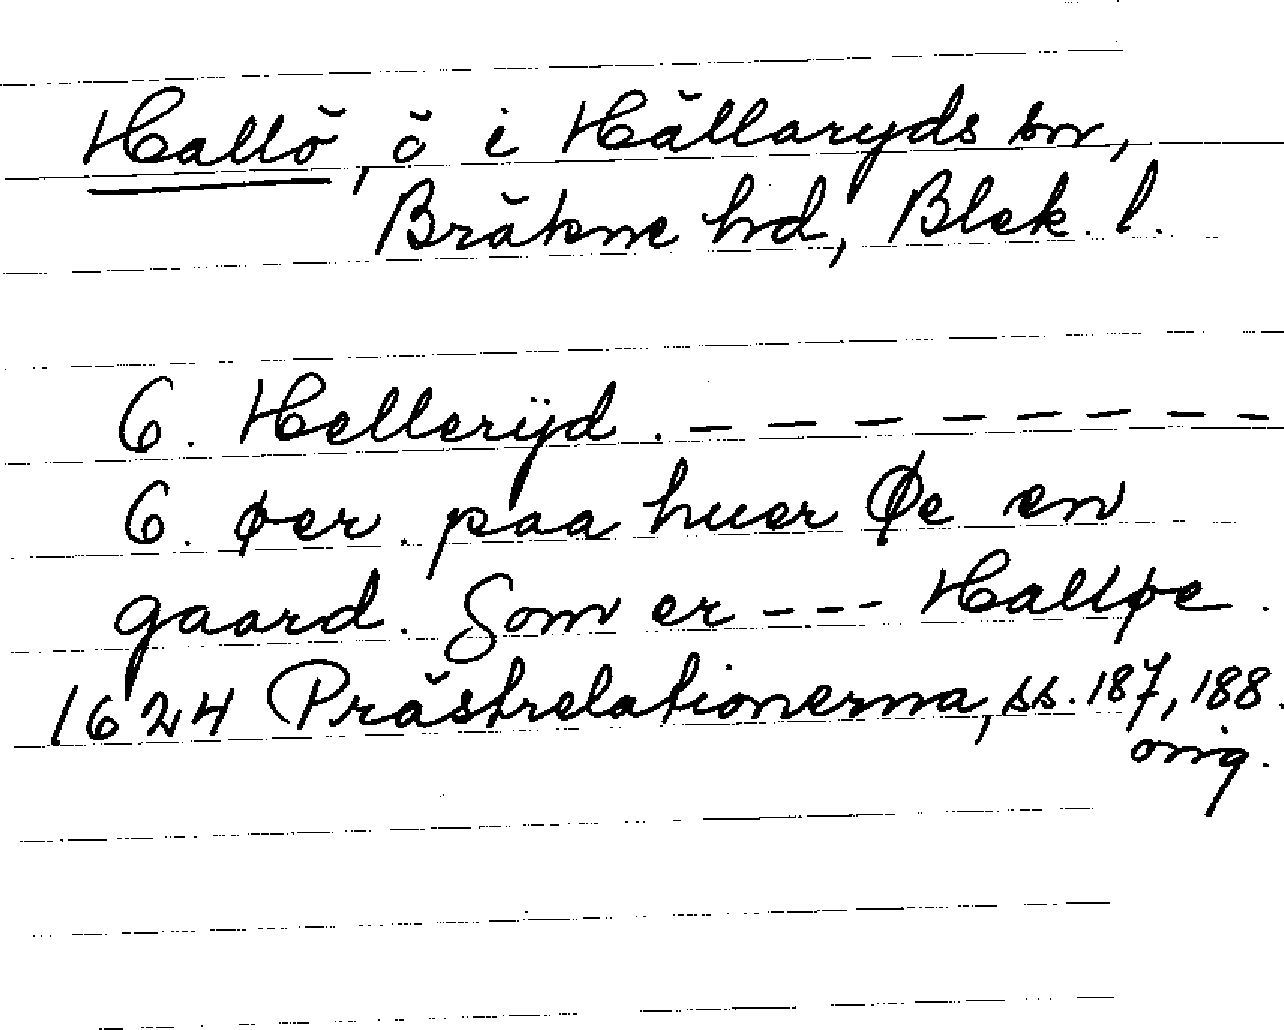 Hallö, ö i Hällaryds sn,
Bräkne hd, Blek. l.
6. Hellerÿd. – – – – – – – –
6. øer. paa huer Øe en
gaard. Som er – – – Balløe.
1624 Prästrelationerna, ss. 187, 188.
orig.